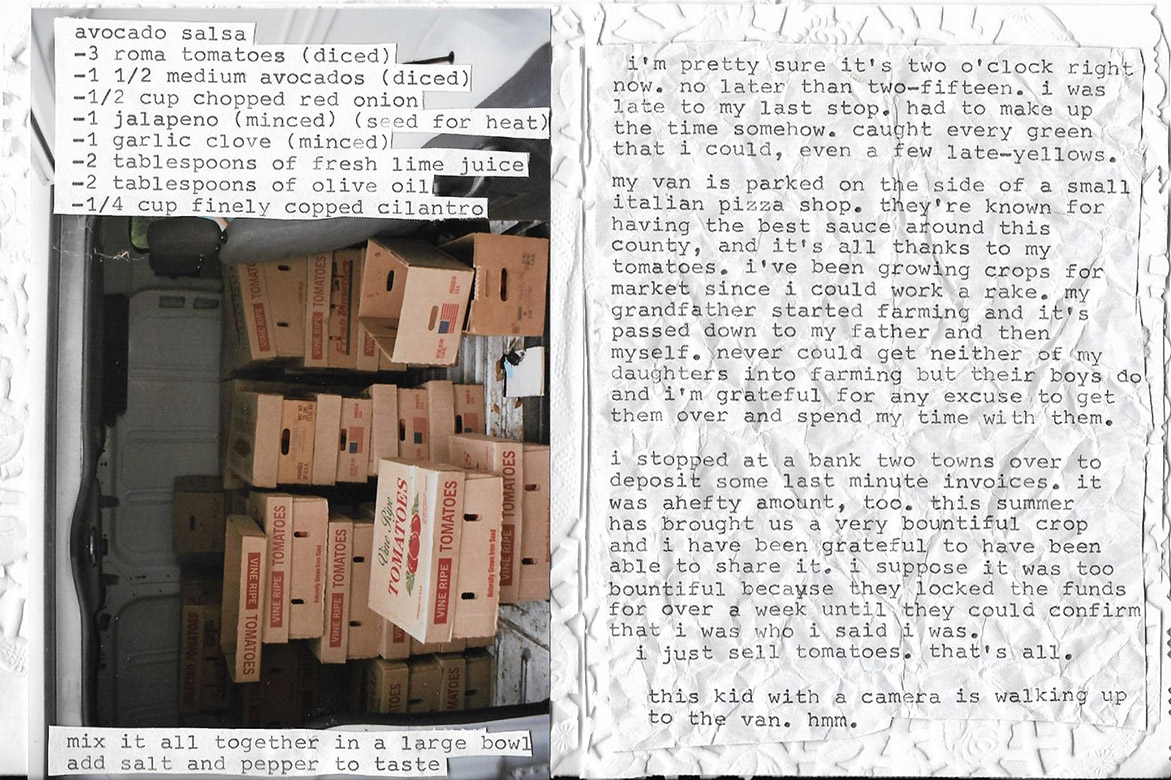 avocado salsa
-3 roma tomatoes (diced)
-1 1/2 medium avocados (diced)
-1/2 cup chopped red onion
-1 jalapeno (minced) (seed for heat)
-1 garlic clove (minced)
-2 tablespoons of fresh lime juice
-2 tablespoons of olive oil
-1/4 cup finely copped cilantro
TOMATOES
TOMATOES
VINE RIPE
VINE RIPE
Vine Ripe
TOMATOES
VINE RIPE TOMATOES
Naturally Grown from Seed
TOMATOES
VINE RIPE
VINE RIPE TOMATOES
Naturally Grown from Seed
VINE RIPE TOMATOES
VINE RIPE TOMATOES
TOMATOES
TOMATOES
mix it all together in a large bowl
add salt and pepper to taste
i'm pretty sure it's two o'clock right
now. no later than two-fifteen. i was
late to my last stop. had to make up
the time somehow. caught every green
that i could, even a few late-yellows.
my van is parked on the side of a small
italian pizza shop. they're known for
having the best sauce around this
county, and it's all thanks to my
tomatoes. i've been growing crops for
market since i could work a rake. my
grandfather started farming and it's
passed down to my father and then
myself. never could get neither of my
daughters into farming but their boys do
and i'm grateful for any excuse to get
them over and spend my time with them.
i stopped at a bank two towns over to
deposit some last minute invoices. it
was ahefty amount, too. this summer
has brought us a very bountiful crop
and i have been grateful to have been
able to share it. i suppose it was too
bountiful because they locked the funds
for over a week until they could confirm
that i was who i said i was.
i just sell tomatoes. that's all.
this kid with a camera is walking up
to the van. hmm.